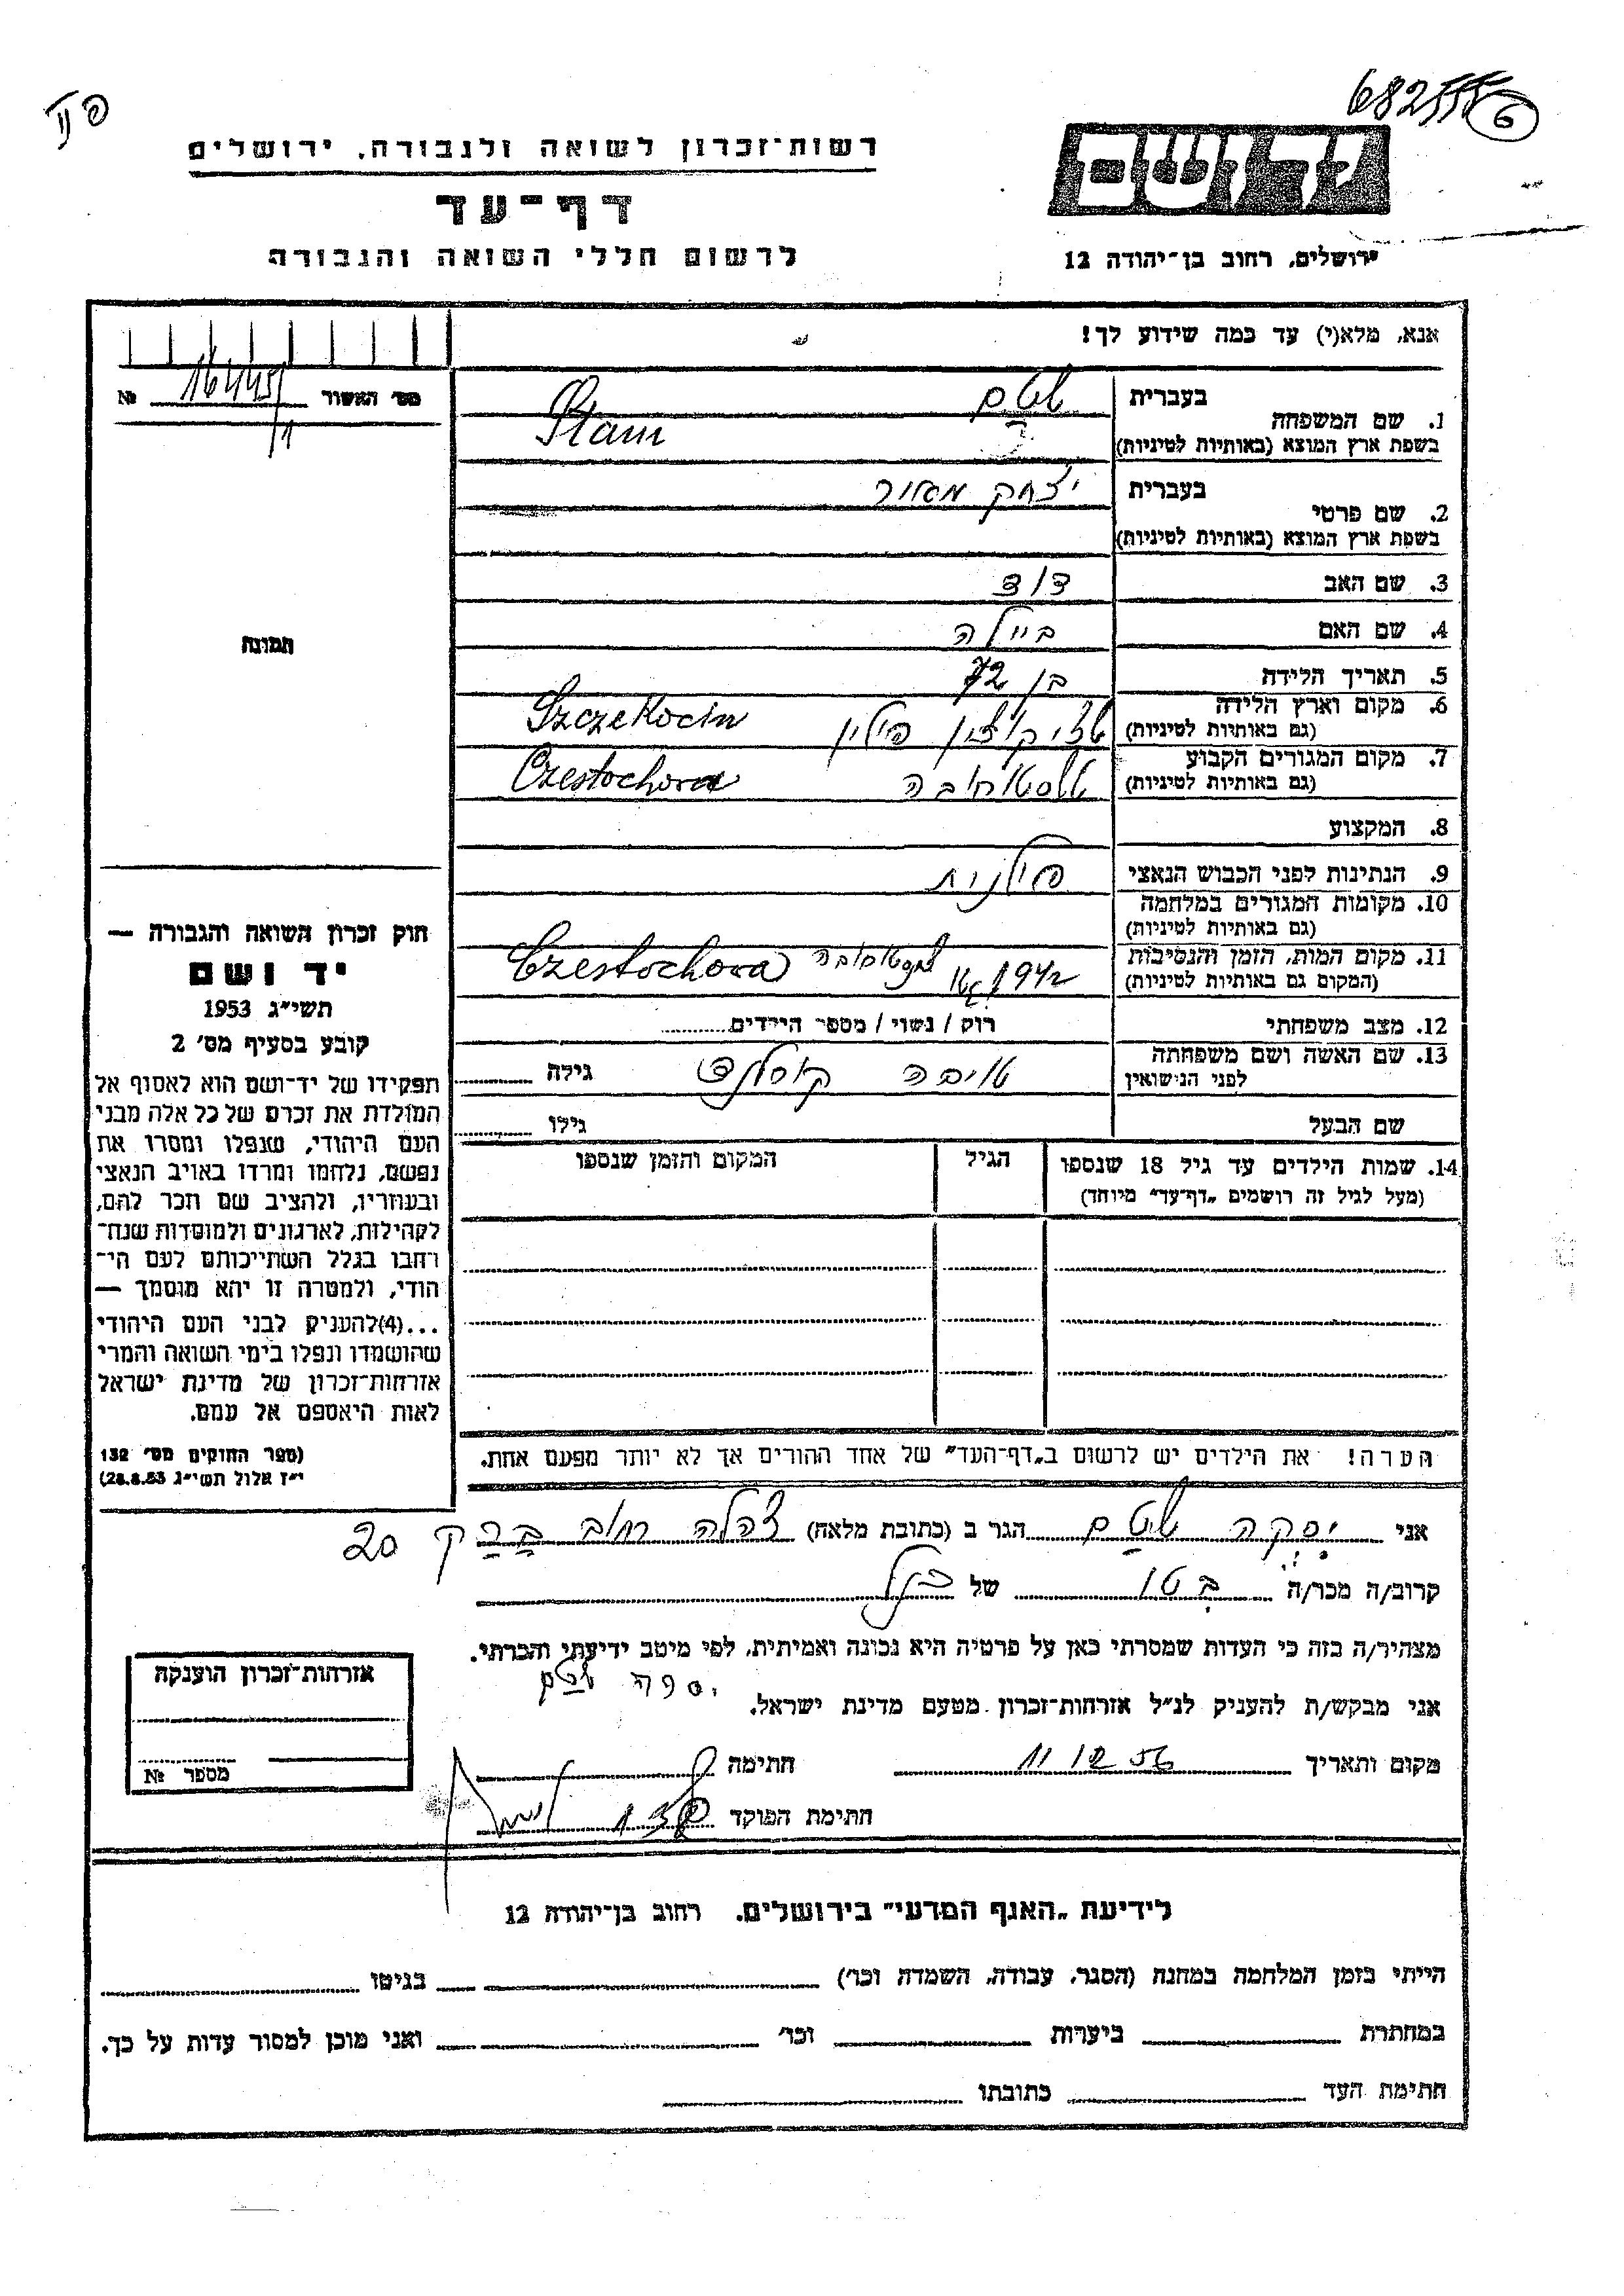 682555 6
פ
יד ושם
רשות־זכרון לשואה ולגבורה, ירושלים
דף־עד
לרשום חללי השואה והגבורה
ירושלים, רחוב בן־יהודה 12
אנא, מלא(י) עד כמה שידוע לך!
מס׳ האשור 16445/1 №
1. שם המשפחה
בעברית שטם
בשפת ארץ המוצא (באותיות לטיניות) Sztam
2. שם פרטי
בעברית יצחק מאיר
בשפת ארץ המוצא (באותיות לטיניות)
3. שם האב דוד
4. שם האם ביילה
5. תאריך הלידה בן 72
6. מקום וארץ הלידה פולין Szczekocin
(גם באותיות לטיניות)
7. מקום המגורים הקבוע Czestochova
(גם באותיות לטיניות)
8. המקצוע
9. הנתינות לפני הכבוש הנאצי פולנית
10. מקומות המגורים במלחמה
(גם באותיות לטיניות)
11. מקום המות, הזמן והנסיבות 1942 Czestochova
(המקום גם באותיות לטיניות)
12. מצב משפחתי רוק / נשוי / מספר הילדים
13. שם האשה ושם משפחתה טויבה גילה
לפני הנישואין
שם הבעל גילו
14. שמות הילדים עד גיל 18 שנספו הגיל המקום והזמן שנספו
(מעל לגיל זה רושמים „דף־עד” מיוחד)
הערה! את הילדים יש לרשום ב„דף־העד” של אחד ההורים אך לא יותר מפעם אחת.
תמונה
חוק זכרון השואה והגבורה —
יד ושם
תשי״ג 1953
קובע בסעיף מס׳ 2
תפקידו של יד־ושם הוא לאסוף אל
המולדת את זכרם של כל אלה מבני
העם היהודי, שנפלו ומסרו את
נפשם, נלחמו ומרדו באויב הנאצי
ובעוזריו, ולהציב שם וזכר להם,
לקהילות, לארגונים ולמוסדות שנח־
רחבו בגלל השתייכותם לעם הי־
הודי, ולמטרה זו יהא מוסמך —
...(4)להעניק לבני העם היהודי
שהושמדו ונפלו בימי השואה והמרי
אזרחות־זכרון של מדינת ישראל
לאות היאספם אל עמם.
(ספר החוקים מס׳ 132
י״ז אלול תשי״ג 28.8.53)
אני שטם הגר ב (כתובת מלאה) צהלה רחוב ברק 20
קרוב/ה מכר/ה בנו של הנ״ל
מצהיר/ה בזה כי העדות שמסרתי כאן על פרטיה היא נכונה ואמיתית, לפי מיטב ידיעתי והכרתי.
אני מבקש/ת להעניק לנ״ל אזרחות־זכרון מטעם מדינת ישראל.
מקום ותאריך 11 12 56 חתימה
חתימת הפוקד
אזרחות־זכרון הוענקה
מספר №
לידיעת „האגף המדעי” בירושלים, רחוב בן־יהודה 12
הייתי בזמן המלחמה במחנה (הסגר, עבודה, השמדה וכו׳) בגיטו
במחתרת ביערות וכו׳ ואני מוכן למסור עדות על כך.
חתימת העד כתובתו